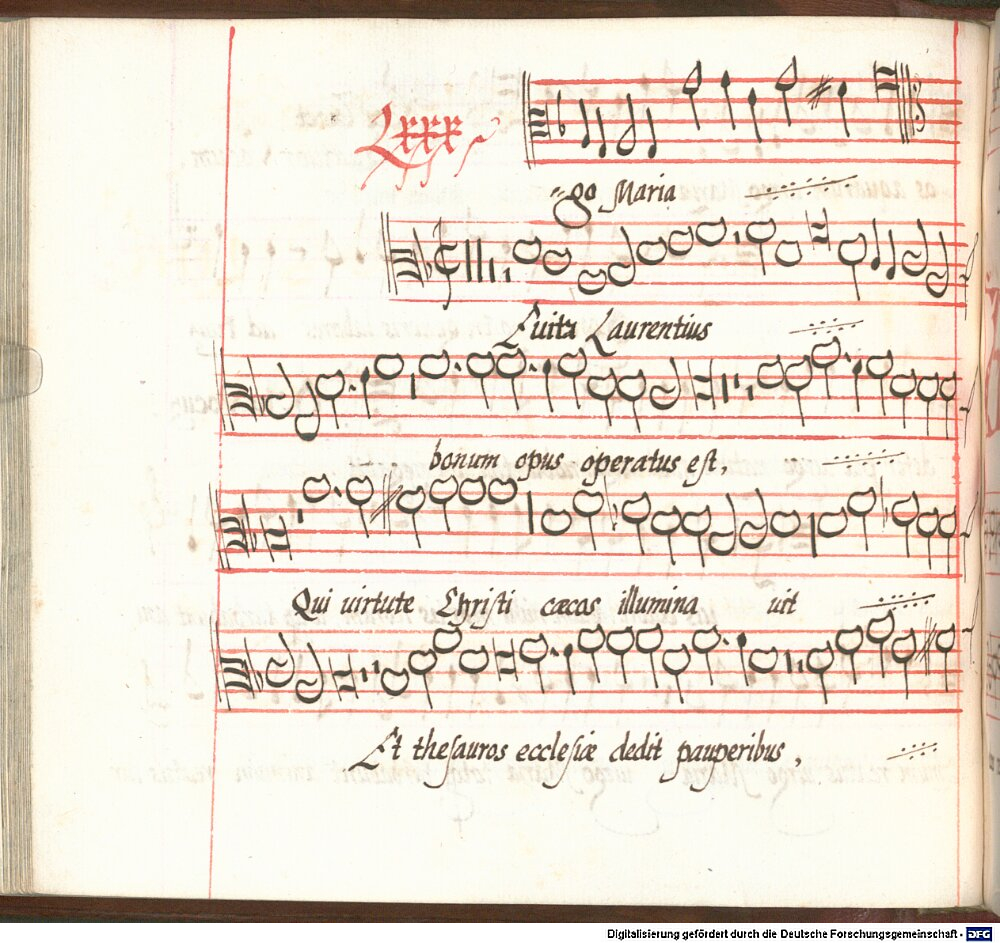 Lxxx
-go Maria
Leuita Laurentius
bonum opus operatus est,
Qui uirtute Christi cæcos illumina uit
Et thesauros ecclesiæ dedit pauperibus,
Digitalisierung gefördert durch die Deutsche Forschungsgemeinschaft - DFG